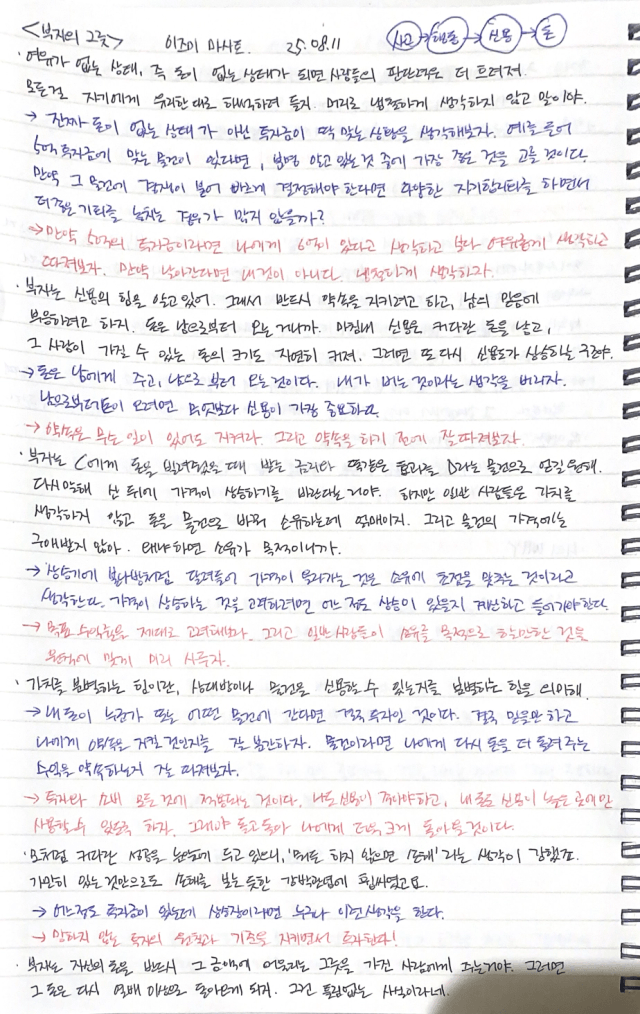 <부자의 그릇> 이즈미 마사토. 25.08.11 사고→행동→신용→돈
· 여유가 없는 상태, 즉 돈이 없는 상태가 되면 사람들의 판단력은 더 흐려져.
모든걸 자기에게 유리한대로 해석하려 들지. 머리로 냉정하게 생각하지 않고 말이야.
→ 진짜 돈이 없는 상태가 아닌 투자금이 딱 맞는 상황을 생각해보자. 예를 들어
5억 투자금에 맞는 물건이 있다면, 분명 알고 있는 것 중에 가장 좋은 것을 고를 것이다.
만약 그 물건에 경쟁이 붙어 빠르게 결정해야 한다면 다양한 자기합리화를 하면서
더 좋은 기회를 놓치는 경우가 많지 않을까?
→ 만약 5억의 투자금이라면 나에게 6억이 있다고 생각하고 보다 여유롭게 생각하고
따져보자. 만약 날아간다면 내것이 아니다. 냉정하게 생각하자.
· 부자는 신용의 힘을 알고 있어. 그래서 반드시 약속을 지키려고 하고, 남의 믿음에
부응하려고 하지. 돈은 남으로부터 오는 거니까. 마침내 신용은 커다란 돈을 낳고,
그 사람이 가질 수 있는 돈의 크기도 자연히 커져. 그러면 또 다시 신용도가 상승하는 구조야.
→ 돈은 남에게 주고, 남으로부터 오는 것이다. 내가 버는 것이라는 생각을 버리자.
남으로부터 돈이 오려면 무엇보다 신용이 가장 중요하다.
→ 약속은 무슨 일이 있어도 지켜라. 그리고 약속을 하기 전에 잘 따져보자.
· 부자는 C에게 돈을 빌려줬을 때 받는 금리와 똑같은 효과를 D라는 물건으로 얻길 원해.
다시 말해 산 뒤에 가격이 상승하기를 바란다는 거야. 하지만 일반 사람들은 가치를
생각하지 않고 돈을 물건으로 바꿔 소유하는데 얽매이지. 그리고 물건의 가격에는
구애받지 않아. 왜냐하면 소유가 목적이니까.
→ 상승기에 불나방처럼 달려들어 가격이 올라가는 것은 소유에 초점을 맞추는 것이라고
생각한다. 가격이 상승하는 것을 고려하려면 어느 정도 상승이 있을지 계산하고 들어가야 한다.
→ 목표 수익률을 제대로 고려해보자. 그리고 일반 사람들이 소유를 목적으로 할 만한 것을
원칙에 맞게 미리 사두자.
· 가치를 분별하는 힘이란, 상대방이나 물건을 신용할 수 있는지를 분별하는 힘을 의미해.
→ 내 돈이 누군가 또는 어떤 물건에 간다면 결국 투자인 것이다. 결국 믿을만 하고
나에게 약속을 지킬 것인지를 잘 분간하자. 물건이라면 나에게 다시 돈을 더 돌려주는
수익을 약속하는지 잘 따져보자.
→ 투자와 소비 모든 것에 적용되는 것이다. 나도 신용이 좋아야하고, 내 돈도 신용이 높은 곳에만
사용할 수 있도록 하자. 그래야 돌고 돌아 나에게 더욱 크게 돌아올 것이다.
· 모처럼 커다란 성공을 눈앞에 두고 있으니, '뭐라도 하지 않으면 손해'라는 생각이 강했죠.
가만히 있는 것만으로도 손해를 보는 듯한 강박관념에 휩싸였고요.
→ 어느정도 투자금이 있는데 상승장이라면 누구나 이런 생각을 한다.
→ 변하지 않는 투자의 원칙과 기준을 지키면서 투자한다!
· 부자는 자신의 돈을 반드시 그 금액에 어울리는 그릇을 가진 사람에게 주는거야. 그러면
그 돈은 다시 열배 이상으로 돌아오게 되지. 그건 틀림없는 사실이라네.